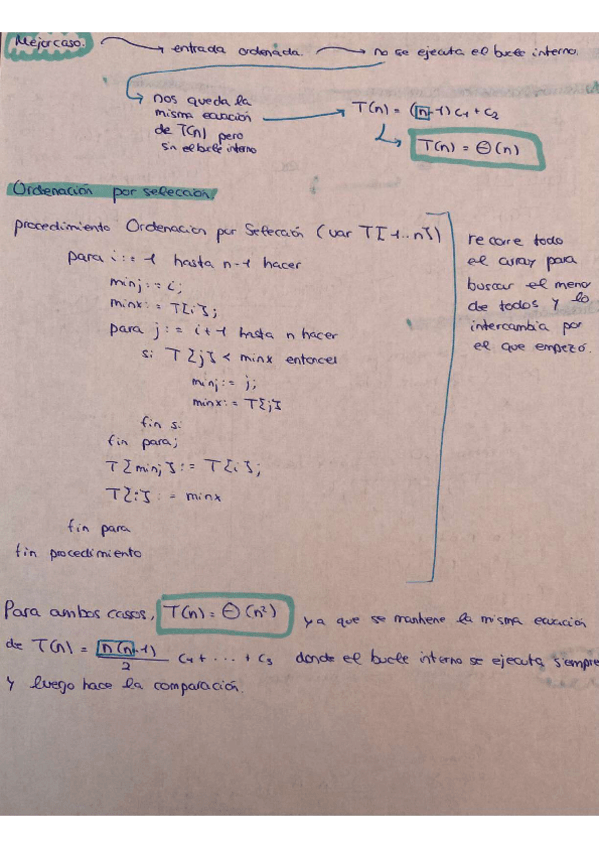 Mejor caso. entrada ordenada. no se ejecuta el bucle interno.
nos queda la
misma ecuación
de T(n) pero
sin el bucle interno
T(n) = (n-1)c1+c2
T(n) = Θ(n)
Ordenación por selección.
procedimiento Ordenacion por Selección (var T[1..n])
para i:= 1 hasta n-1 hacer
minj:= i;
minx:= T[i];
para j:= i+1 hasta n hacer
si T[j] < minx entonces
minj:= j;
minx:= T[j]
fin si
fin para;
T[minj]:= T[i];
T[i]:= minx
fin para
fin procedimiento
recorre todo
el array para
buscar el meno
de todos y lo
intercambia por
el que empezó.
Para ambos casos, T(n)= Θ(n²) ya que se mantiene la misma ecuación
de T(n) = n(n-1)/2 c1+...+c3 donde el bucle interno se ejecuta siempre
y luego hace la comparación.